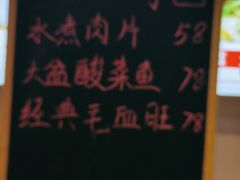 水煮肉片 58
大盆酸菜鱼 78
经典毛血旺 78